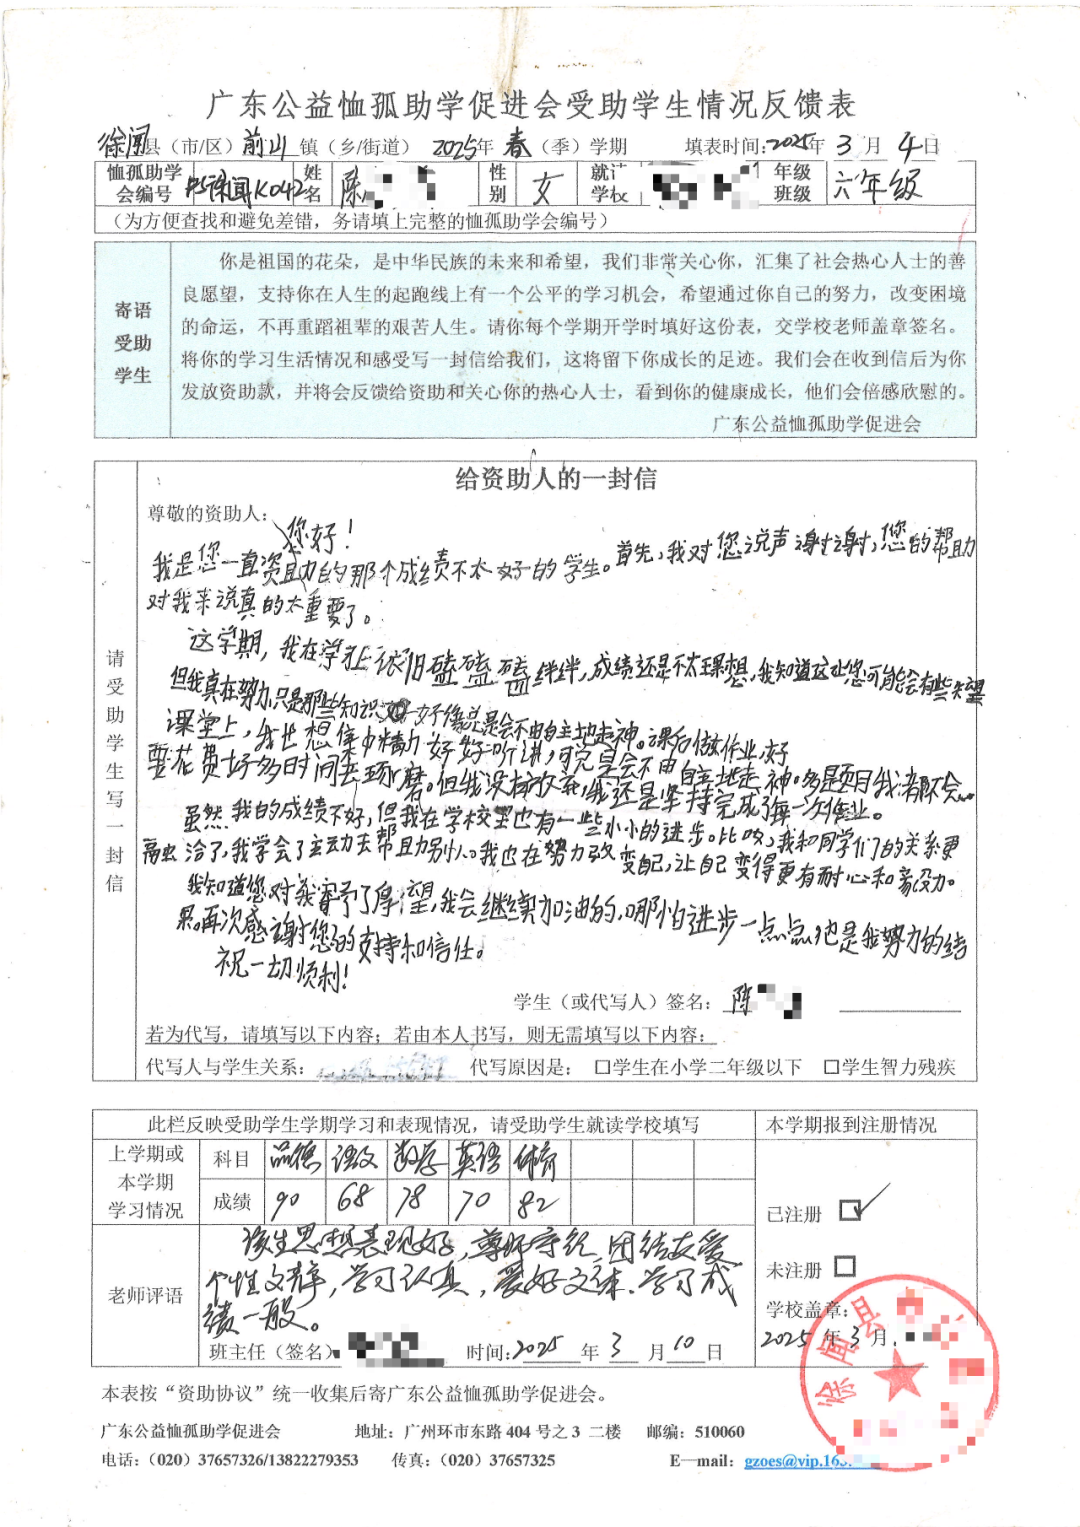 广东公益恤孤助学促进会受助学生情况反馈表
徐闻县（市/区）前山镇（乡/街道）2025年春（季）学期 填表时间:2025年3月4日
恤孤助学会编号 PS徐闻K042 姓名 陈 性别 女 就 学校 年级班级 六年级
（为方便查找和避免差错，务请填上完整的恤孤助学会编号）
寄语受助学生
你是祖国的花朵，是中华民族的未来和希望，我们非常关心你，汇集了社会热心人士的善
良愿望，支持你在人生的起跑线上有一个公平的学习机会，希望通过你自己的努力，改变困境
的命运，不再重蹈祖辈的艰苦人生。请你每个学期开学时填好这份表，交学校老师盖章签名。
将你的学习生活情况和感受写一封信给我们，这将留下你成长的足迹。我们会在收到信后为你
发放资助款，并将会反馈给资助和关心你的热心人士，看到你的健康成长，他们会倍感欣慰的。
广东公益恤孤助学促进会
请受助学生写一封信
给资助人的一封信
尊敬的资助人：
您好！
我是您一直资助的那个成绩不太好的学生。首先，我对您说声谢谢，您的帮助
对我来说真的太重要了。
这学期，我在学习上依旧磕磕磕绊绊，成绩还是不太理想，我知道这让您可能会有些失望
但我真在努力只是那些知识好像总是会不由自主地走神。课后做作业，好
课堂上，我也想集中精力好好听讲，可总是会不由自主地走神。多题目我都不会
要花费好多时间去琢磨。但我没有放弃，我还是坚持完成了每一次作业。
虽然我的成绩不好，但我在学校里也有一些小小的进步。比如，我和同学们的关系更
融洽了，我学会了主动去帮助别人。我也在努力改变自己，让自己变得更有耐心和毅力。
我知道您对我寄予了厚望，我会继续加油的，哪怕进步一点点也是我努力的结
果。再次感谢您的支持和信任。
祝一切顺利！
学生（或代写人）签名：陈
若为代写，请填写以下内容；若由本人书写，则无需填写以下内容：
代写人与学生关系： 代写原因是： □学生在小学二年级以下 □学生智力残疾
此栏反映受助学生学期学习和表现情况，请受助学生就读学校填写 本学期报到注册情况
上学期或本学期学习情况
科目 品德 语文 数学 英语 体育
成绩 90 68 78 70 82
已注册 ☑
未注册 □
老师评语
该生思想表现好，尊师守纪，团结友爱
个性文静，学习认真，爱好文体。学习成
绩一般。
班主任（签名） 时间:2025年3月10日
学校盖章：
2025年3月
徐闻县
本表按“资助协议”统一收集后寄广东公益恤孤助学促进会。
广东公益恤孤助学促进会 地址：广州环市东路404号之3 二楼 邮编：510060
电话：（020）37657326/13822279353 传真：（020）37657325 E—mail：gzoes@vip.163.